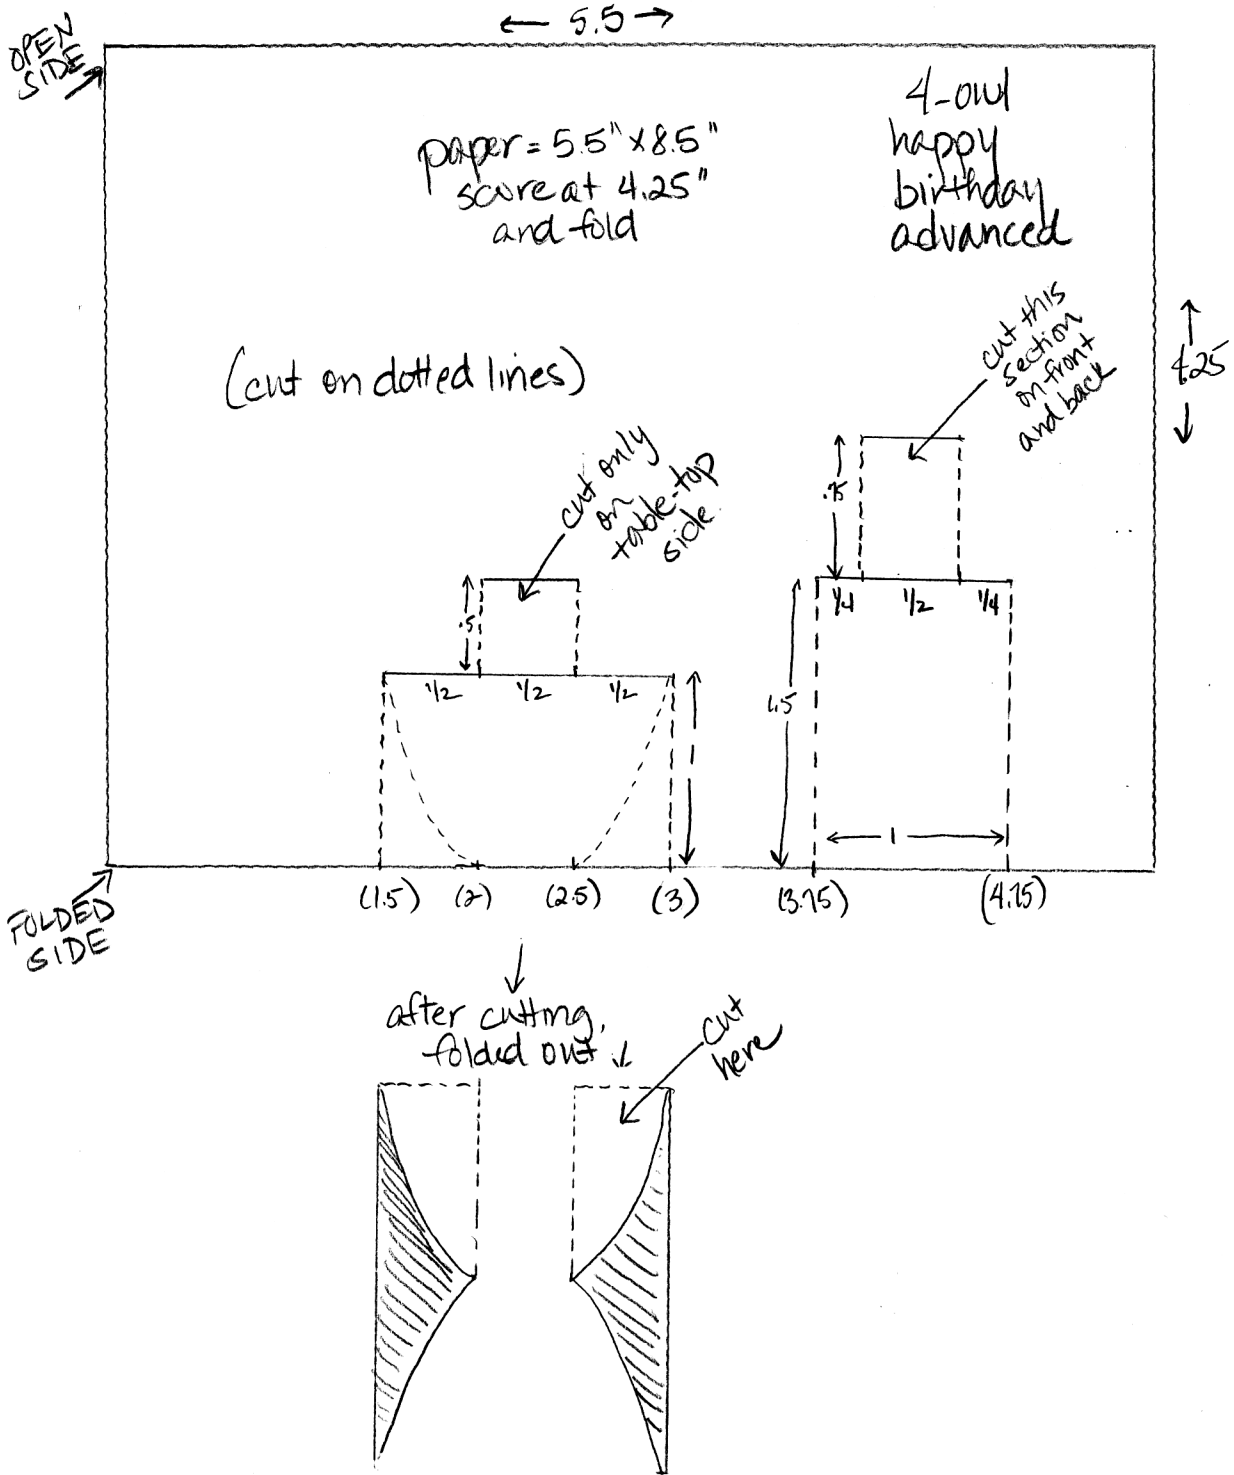 ← 5.5 →
OPEN
SIDE
paper = 5.5" x 8.5"
score at 4.25"
and fold
4-owl
happy
birthday
advanced
(cut on dotted lines)
cut this
section
on front
and back
4.25
cut only
on
table-top
side.
.75
1/4 1/2 1/4
.5
1/2 1/2 1/2
1
1.5
1
(1.5) (2) (2.5) (3) (3.75) (4.75)
FOLDED
SIDE
after cutting,
folded out
cut
here